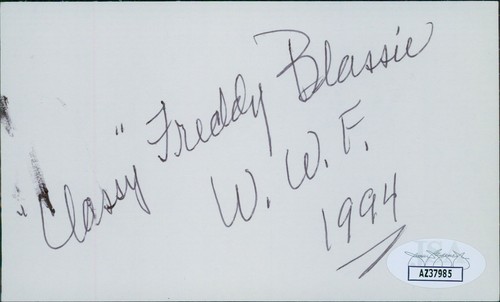 "Classy" Freddy Blassie
W. W. F.
1994
JSA
AZ37985